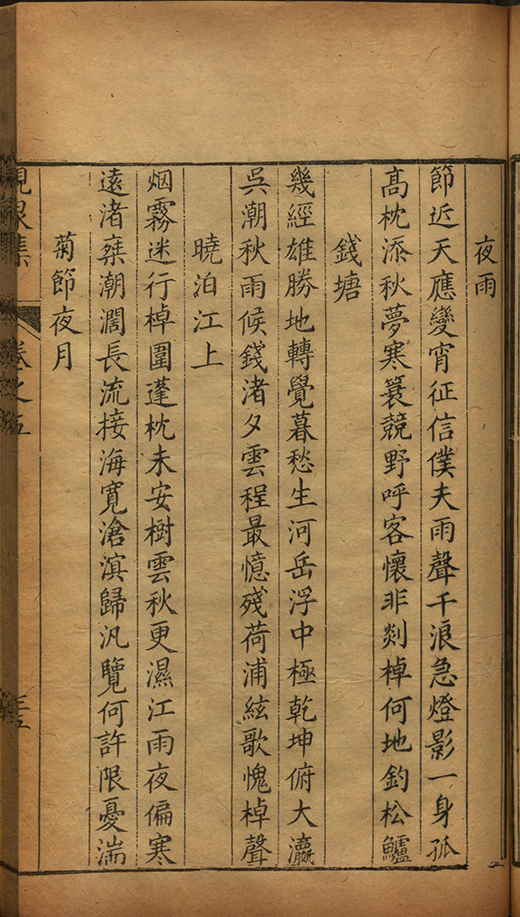 夜雨
節近天應變宵征信僕夫雨聲千浪急燈影一身孤
髙枕添秋夢寒蓑競野呼客懷非剡棹何地釣松鱸
錢塘
幾經雄勝地轉覺暮愁生河岳浮中極乾坤俯大瀛
吳潮秋雨候錢渚夕雲程最憶殘荷浦絃歌愧棹聲
曉泊江上
烟霧迷行棹圍蓬枕未安樹雲秋更濕江雨夜偏寒
遠渚蕖潮濶長流接海寬滄溟歸汎覽何許限憂湍
菊節夜月
集 卷之五